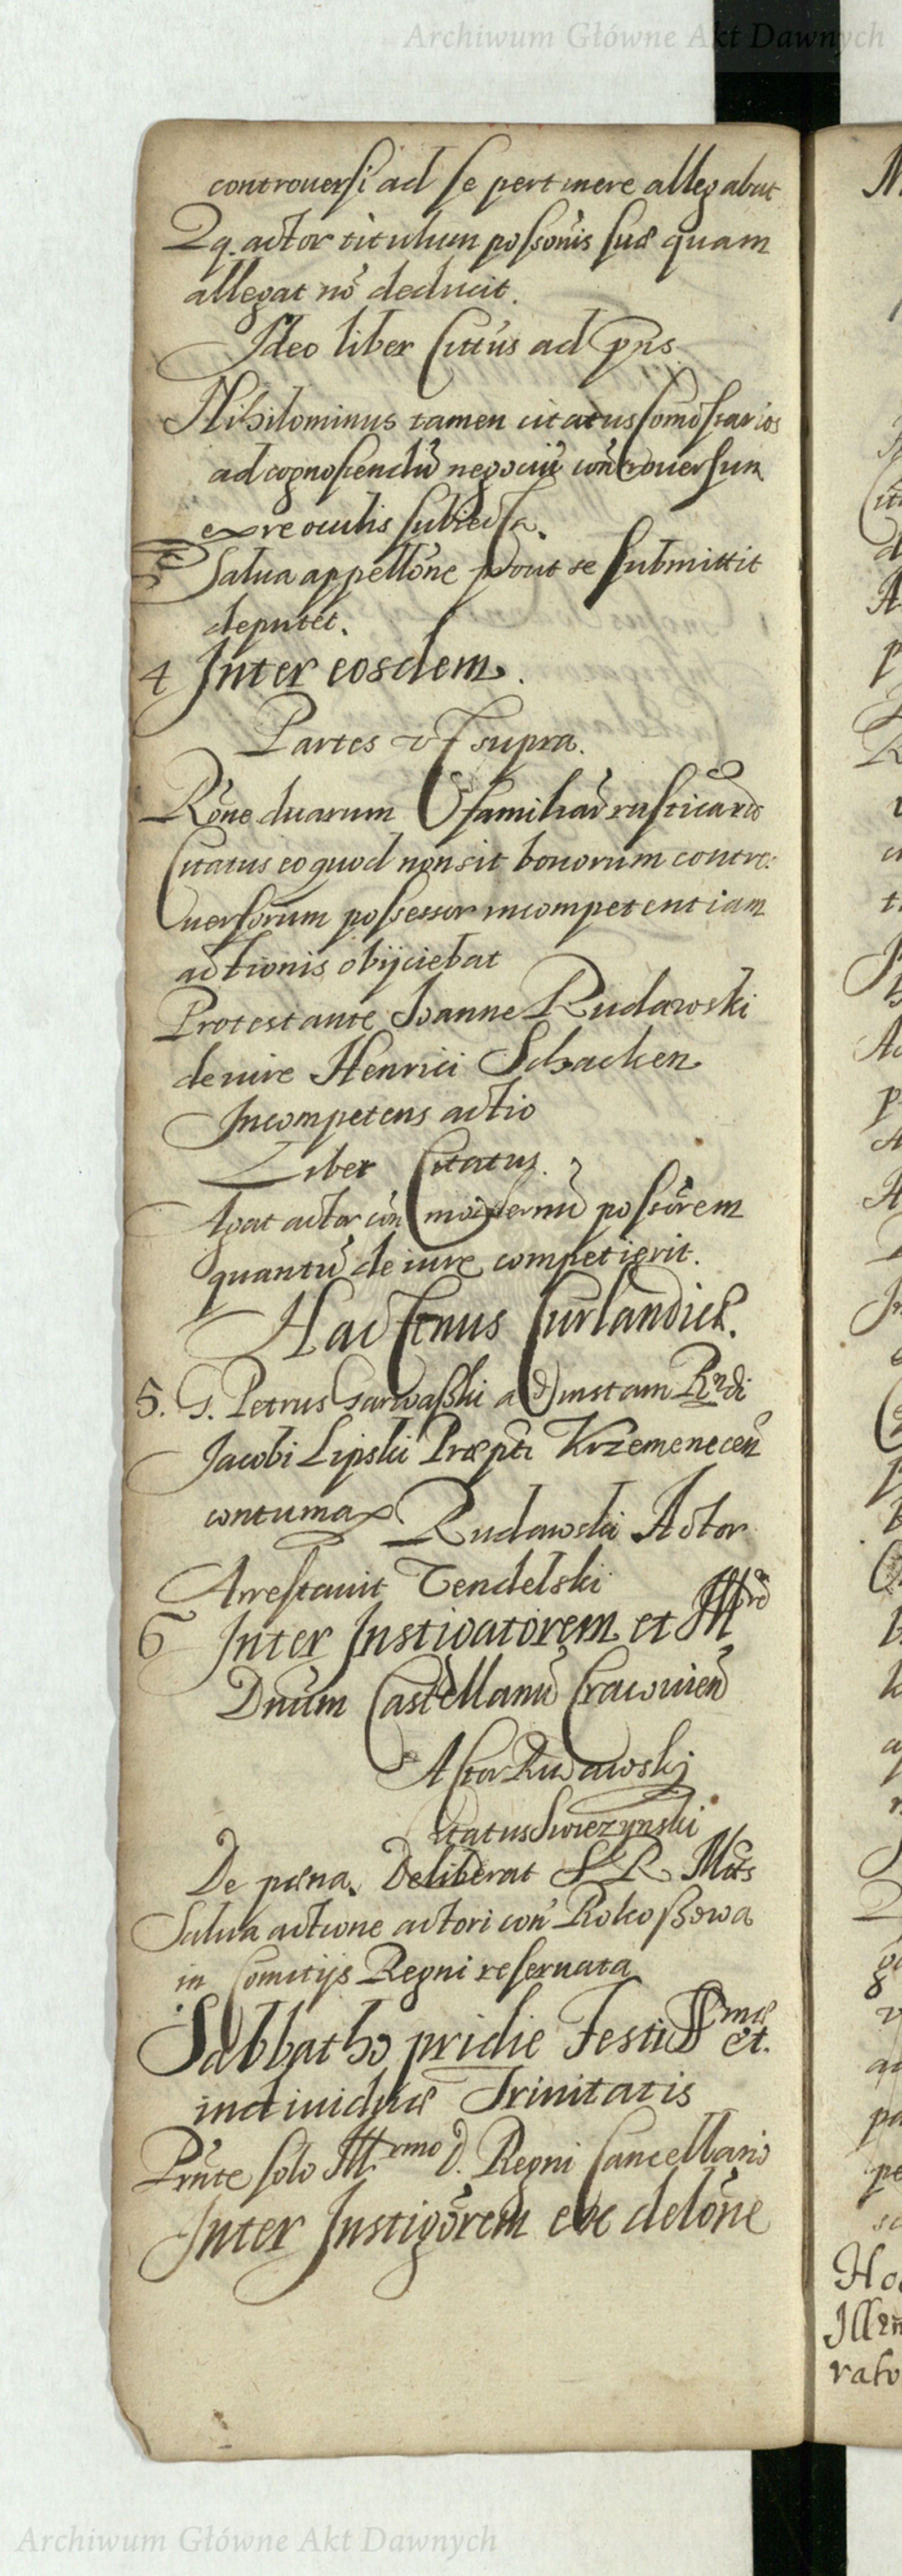 Archiwum Główne Akt Dawnych
controuersi ad se pertinere allegabat
Qq. actor titulum possõnis suæ quam
allegat nõ deducit.
Ideo liber Cittũs ad p̃ns
Nihilominus tamen citatus Comõssarios
ad cognoscendũ negociũ controuersum
ex re oculis subiecta.
Salua appellõne prout se submittit
deputet.
4 Inter eosdem.
Partes vt supra.
Rõne duarum familiarũ rusticarũ
Citatus eo quod non sit bonorum contro:
uersorum possessor incompetentiam
actionis obijciebat
Protestante Joanne Rudawski
de iure Henrici Schacken
Incompetens actio
Liber Citatus.
Agat actor con modernũ possõrem
quantũ de iure competierit.
Hactenus Curlandicæ.
5. G. Petrus Garwaßki ad instam Rndi
Jacobi Lipski Præpti Krzemenecen
contumax Rudawski Actor
Arrestauit Tendelski
6 Inter Instigatorem et Illrẽ
Dnũm Castellanũ Cracouieñ
Actor Rudawskj
Citatus Swiezynski
De pæna. Deliberat S R Mtãs
Salua actione actori con Rokoßowa
in Comitijs Regni reseruata
Sabbatho pridie Festi SSmæ et.
indiuiduæ Trinitatis
Prñte solo Illrmo D. Regni Cancellario
Inter Instigõrem ex delõne
Archiwum Główne Akt Dawnych